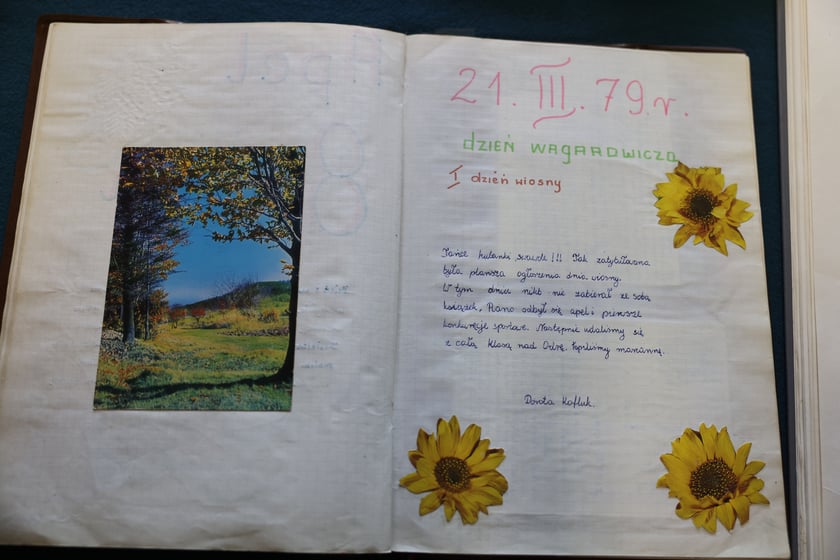 21. III. 79. r.
dzień wagarowicza
I dzień wiosny
Tańce hulanki swawole!!! Tak zatytułowana
była plansza ogłoszenia dnia wiosny.
W tym dniu nikt nie zabierał ze sobą
książek. Rano odbył się apel i pierwsze
konkurencje sportowe. Następnie udaliśmy się
z całą klasą nad Odrę. Topiliśmy marzannę.
Dorota Kafluk.